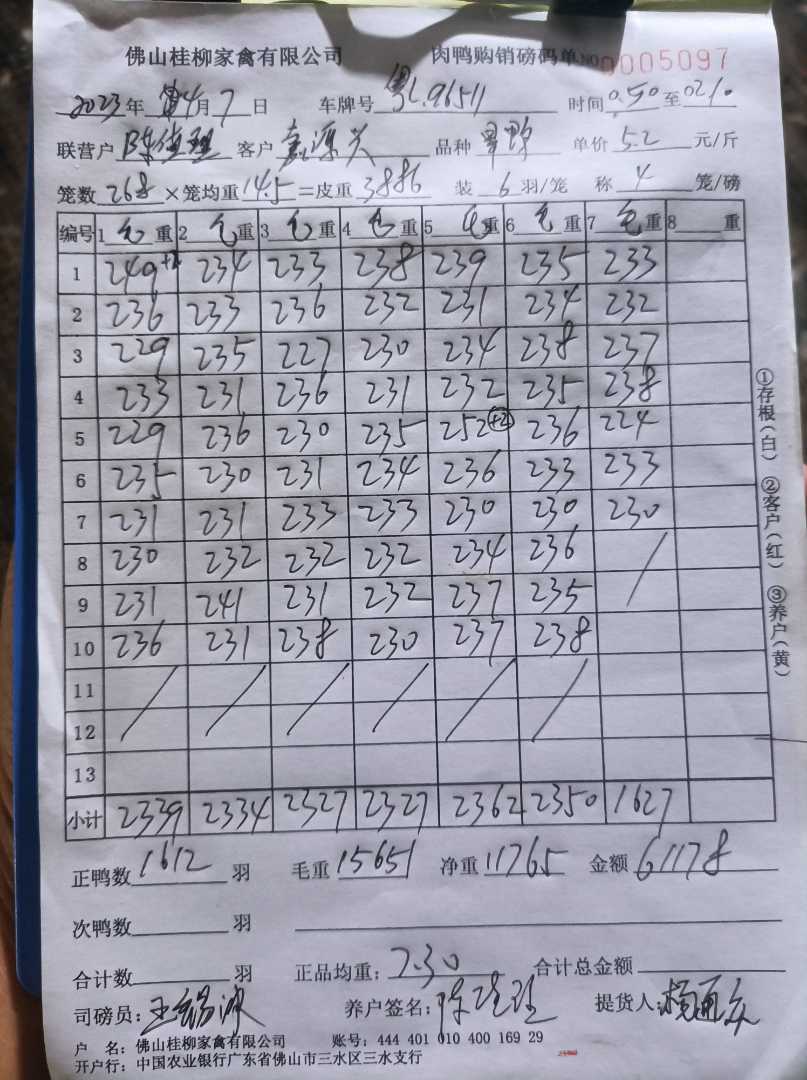 佛山桂柳家禽有限公司 肉鸭购销磅码单 NO 0005097
2023年 4月 7日 车牌号 粤L.96511 时间 0.50 至 0210
联营户 客户 嘉源兴 品种 单价 5.2 元/斤
笼数 268 ×笼均重 14.5 =皮重 3886 装 6 羽/笼 称 4 笼/磅
编号 1 毛重 2 毛重 3 毛重 4 毛重 5 毛重 6 毛重 7 毛重 8 重
1 249+2 234 233 238 239 235 233
2 236 233 236 232 231 234 232
3 229 235 227 230 234 238 237
4 233 231 236 231 232 235 238
5 229 236 230 235 252+2 236 224
6 235 230 231 234 236 233 233
7 231 231 233 233 230 230 230
8 230 232 232 232 234 236 /
9 231 241 231 232 237 235
10 236 231 238 230 237 238
11 / / / / / /
12
13
小计 2339 2334 2327 2327 2362 2350 1627
正鸭数 1612 羽 毛重 15651 净重 11765 金额 61178
次鸭数 羽
合计数 羽 正品均重: 7.30 合计总金额
司磅员: 养户签名: 提货人:
户 名: 佛山桂柳家禽有限公司 账号: 444 401 010 400 169 29
开户行: 中国农业银行广东省佛山市三水区三水支行
①存根(白) ②客户(红) ③养户(黄)